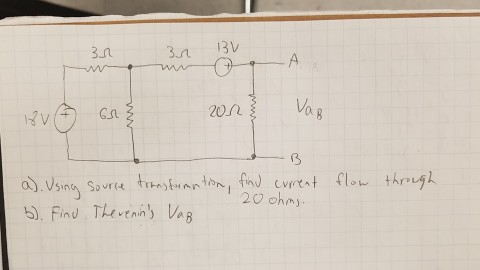 3Ω 3Ω 13V
A
18V 6Ω 20Ω VaB
B
a). Using source transformation, find current flow through
20 ohms.
b). Find Thevenin's VaB